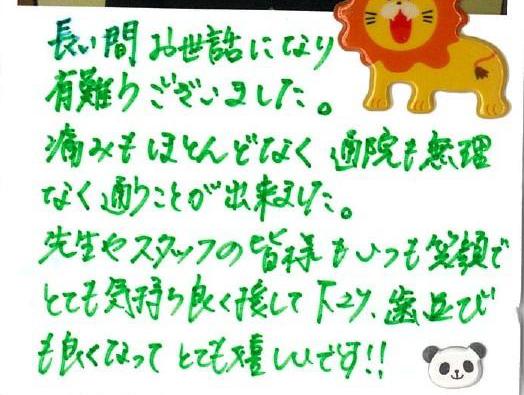 長い間お世話になり
有難うございました。
痛みもほとんどなく通院も無理
なく通うことが出来ました。
先生やスタッフの皆様もいつも笑顔で
とても気持ち良く接して下さり、歯並び
も良くなってとても嬉しいです!!